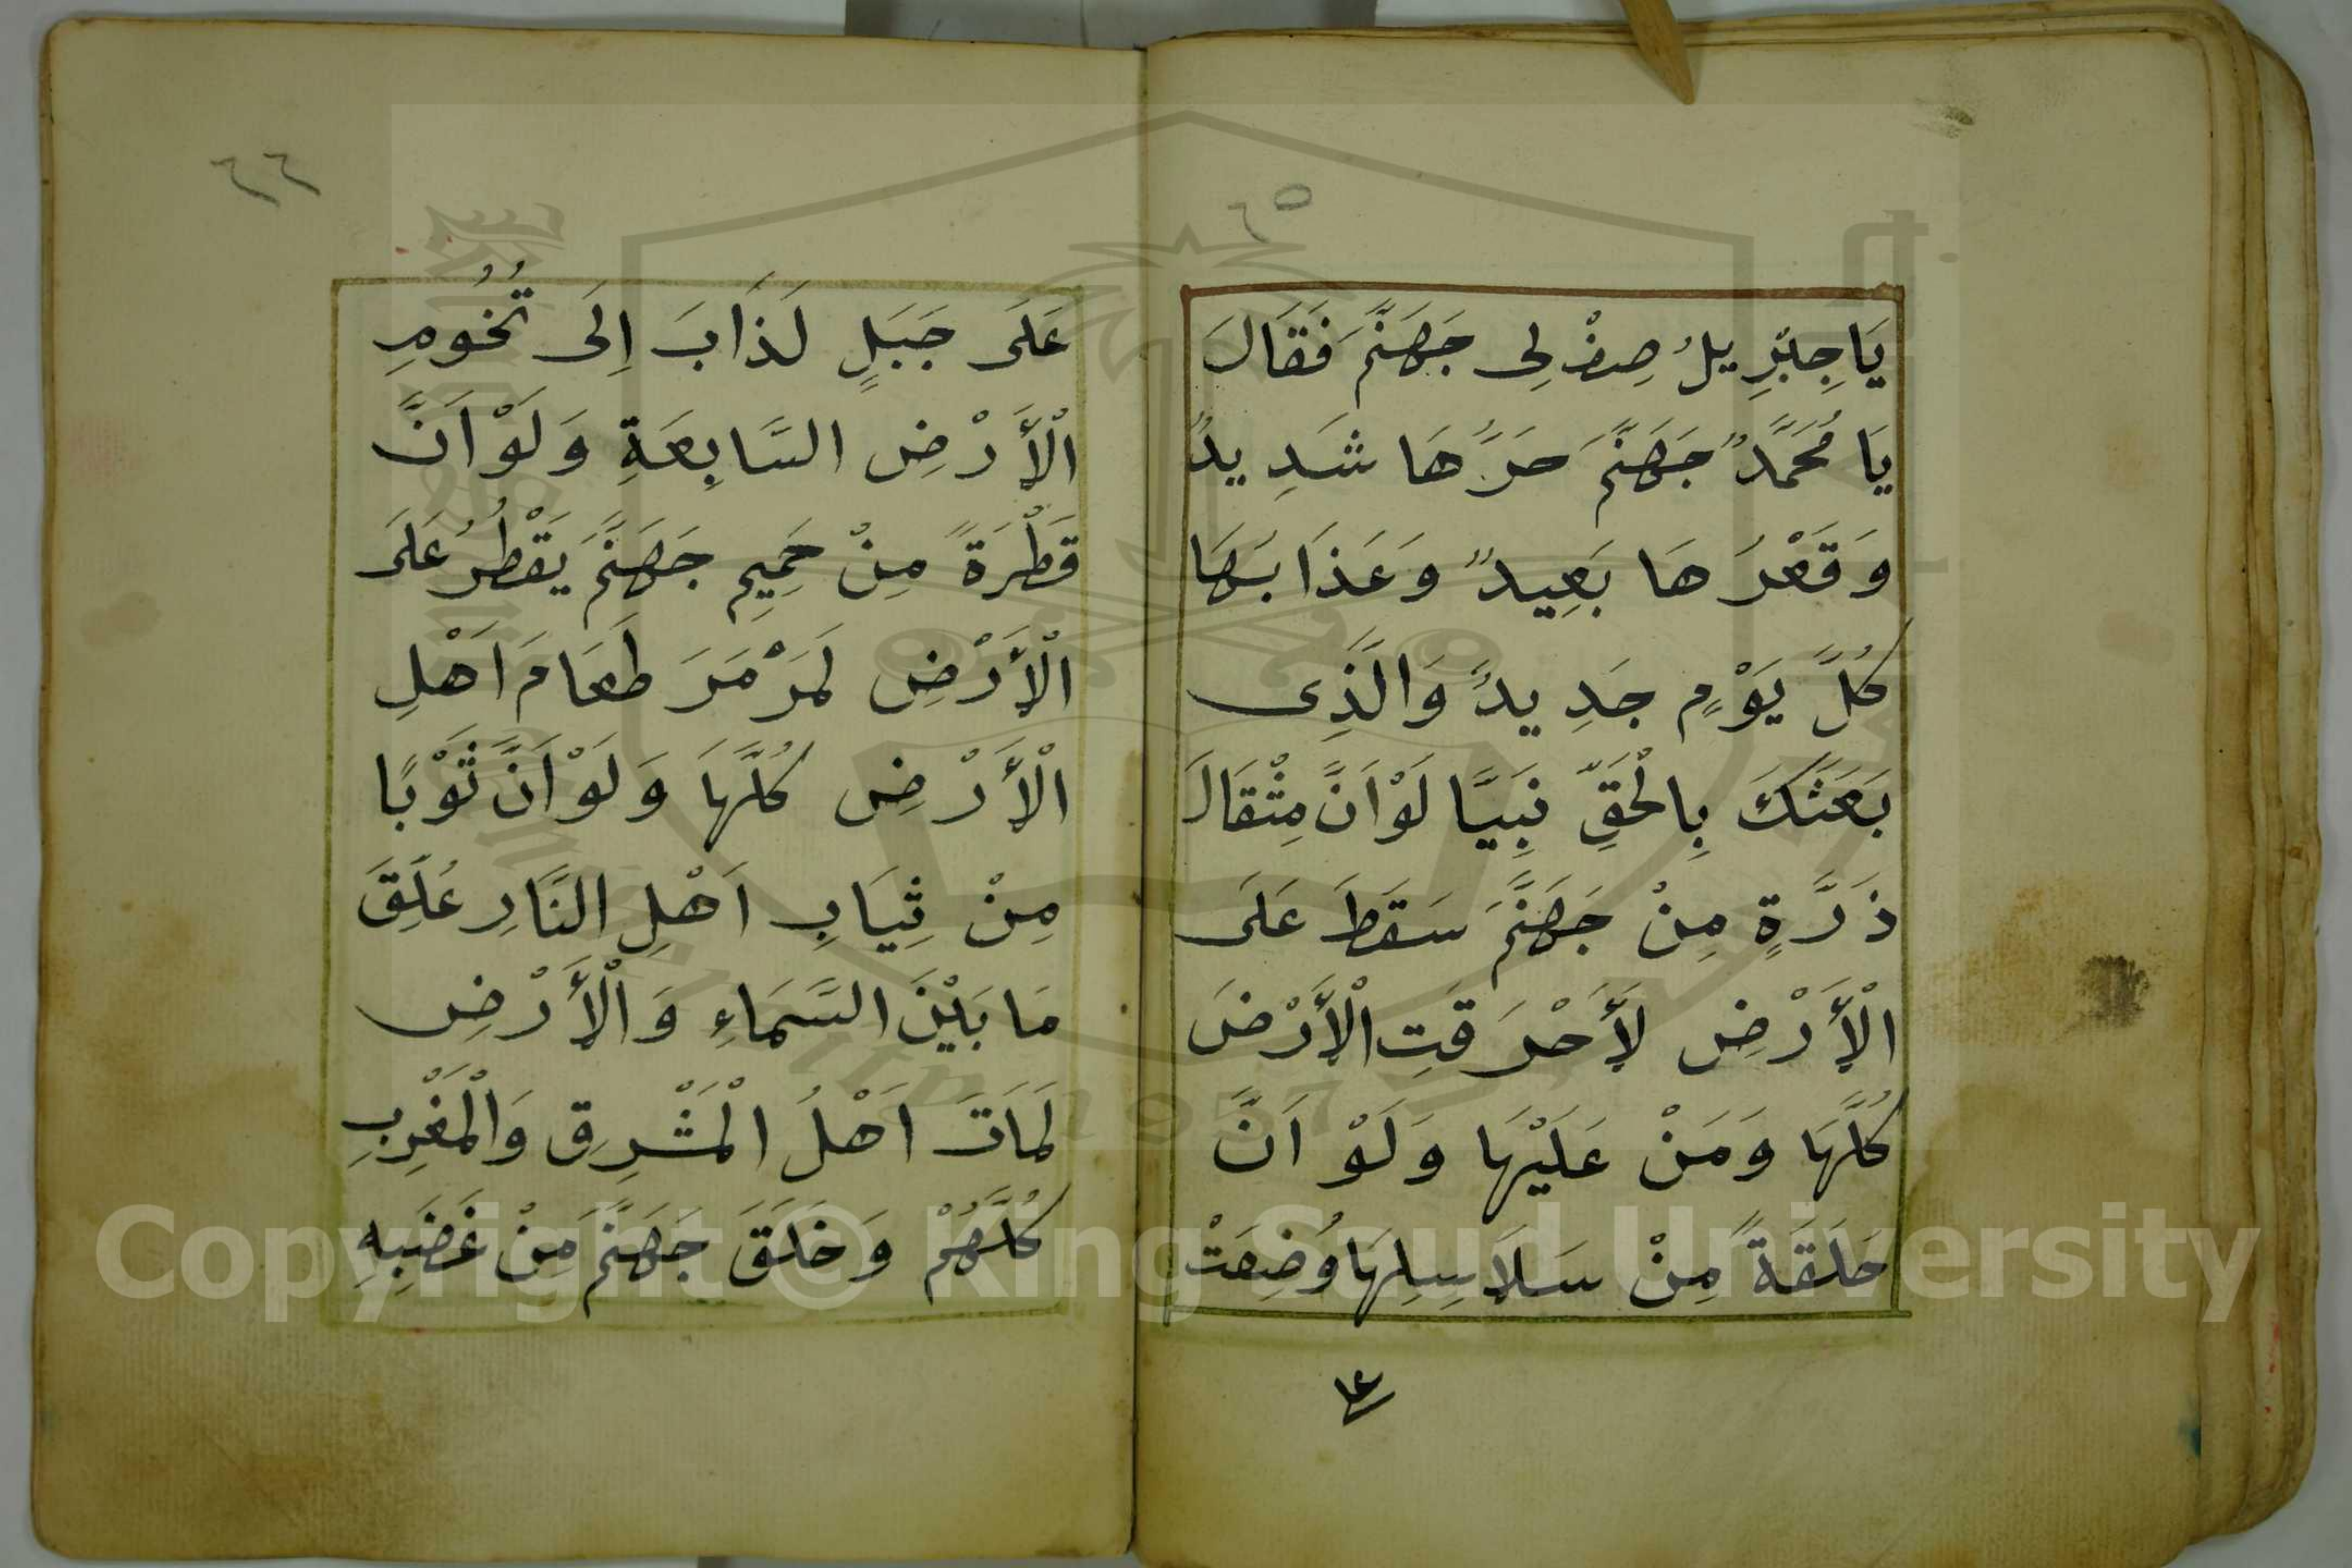 ٦٥
يَا جِبْرِيلُ صِفْ لِى جَهَنَّمَ فَقَالَ
يَا مُحَمَّدٌ جَهَنَّمَ حَرُّهَا شَدِيدٌ
وَقَعْرُهَا بَعِيدٌ وَعَذَابُهَا
كُلَّ يَوْمٍ جَدِيدٌ وَالَّذِى
بَعَثَكَ بِالْحَقِّ نَبِيًّا لَوْ اَنَّ مِثْقَالَ
ذَرَّةٍ مِنْ جَهَنَّمَ سَقَطَ عَلَى
الْأَرْضِ لَأَحْرَقَتِ الْأَرْضَ
كُلَّهَا وَمَنْ عَلَيْهَا وَلَوْ اَنَّ
حَلَقَةً مِنْ سَلَاسِلِهَا وُضِعَتْ
٦٦
عَلَى جَبَلٍ لَذَابَ اِلَى تُخُومِ
الْأَرْضِ السَّابِعَةِ وَلَوْ اَنَّ
قَطْرَةً مِنْ حَمِيمِ جَهَنَّمَ يَقْطُرُ عَلَى
الْأَرْضِ لَمَرْمَرَ طَعَامَ اَهْلِ
الْأَرْضِ كُلَّهَا وَلَوْ اَنَّ ثَوْبًا
مِنْ ثِيَابِ اَهْلِ النَّارِ عُلِّقَ
مَا بَيْنَ السَّمَاءِ وَالْأَرْضِ
لَمَاتَ اَهْلُ الْمَشْرِقِ وَالْمَغْرِبِ
كُلُّهُمْ وَخَلَقَ جَهَنَّمَ مِنْ غَضَبِهِ
Copyright © King Saud University